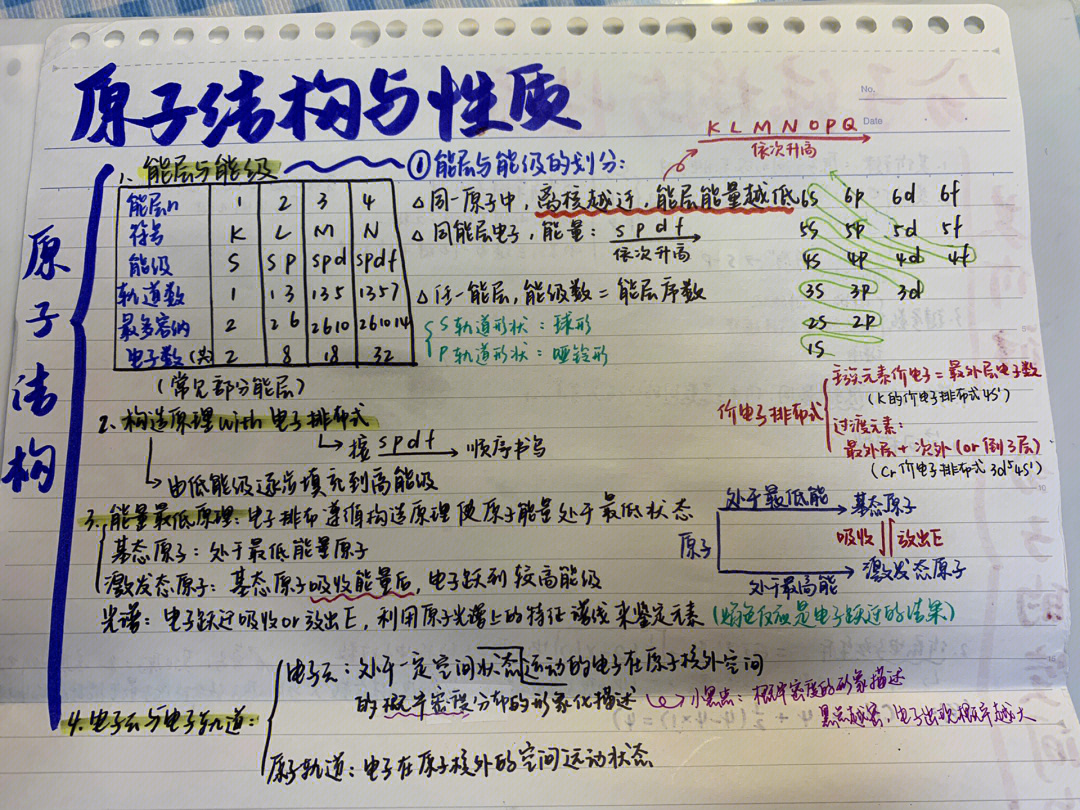 原子结构与性质
No.
Date
原子结构
1. 能层与能级
能层n 1 2 3 4
符号 K L M N
能级 S S P spd spdf
轨道数 1 1 3 1 3 5 1 3 5 7
最多容纳 2 2 6 2 6 10 2 6 10 14
电子数(共) 2 8 18 32
(常见部分能层)
① 能层与能级的划分:
K L M N O P Q
依次升高
△ 同一原子中, 离核越近, 能层能量越低
△ 同能层电子, 能量: s p d f
依次升高
△ 任一能层, 能级数 = 能层序数
S 轨道形状: 球形
P 轨道形状: 哑铃形
6S 6P 6d 6f
5S 5P 5d 5f
4S 4P 4d 4f
3S 3P 3d
2S 2P
1S
价电子排布式
主族元素价电子=最外层电子数
(K的价电子排布式4S¹)
过渡元素:
最外层+次外(or倒3层)
(Cr价电子排布式3d⁵4S¹)
2、构造原理with电子排布式
按 s p d f 顺序书写
由低能级逐步填充到高能级
3、能量最低原理: 电子排布遵循构造原理使原子能量处于最低状态
基态原子: 处于最低能量原子
激发态原子: 基态原子吸收能量后, 电子跃到较高能级
原子
处于最低能
基态原子
吸收 放出E
处于最高能
激发态原子
光谱: 电子跃迁吸收or放出E, 利用原子光谱上的特征谱线来鉴定元素(焰色反应是电子跃迁的结果)
4. 电子云与电子轨道:
电子云: 处于一定空间状态运动的电子在原子核外空间
的概率密度分布的形象化描述
小黑点: 概率密度的形象描述
黑点越密, 电子出现概率越大
原子轨道: 电子在原子核外的空间运动状态